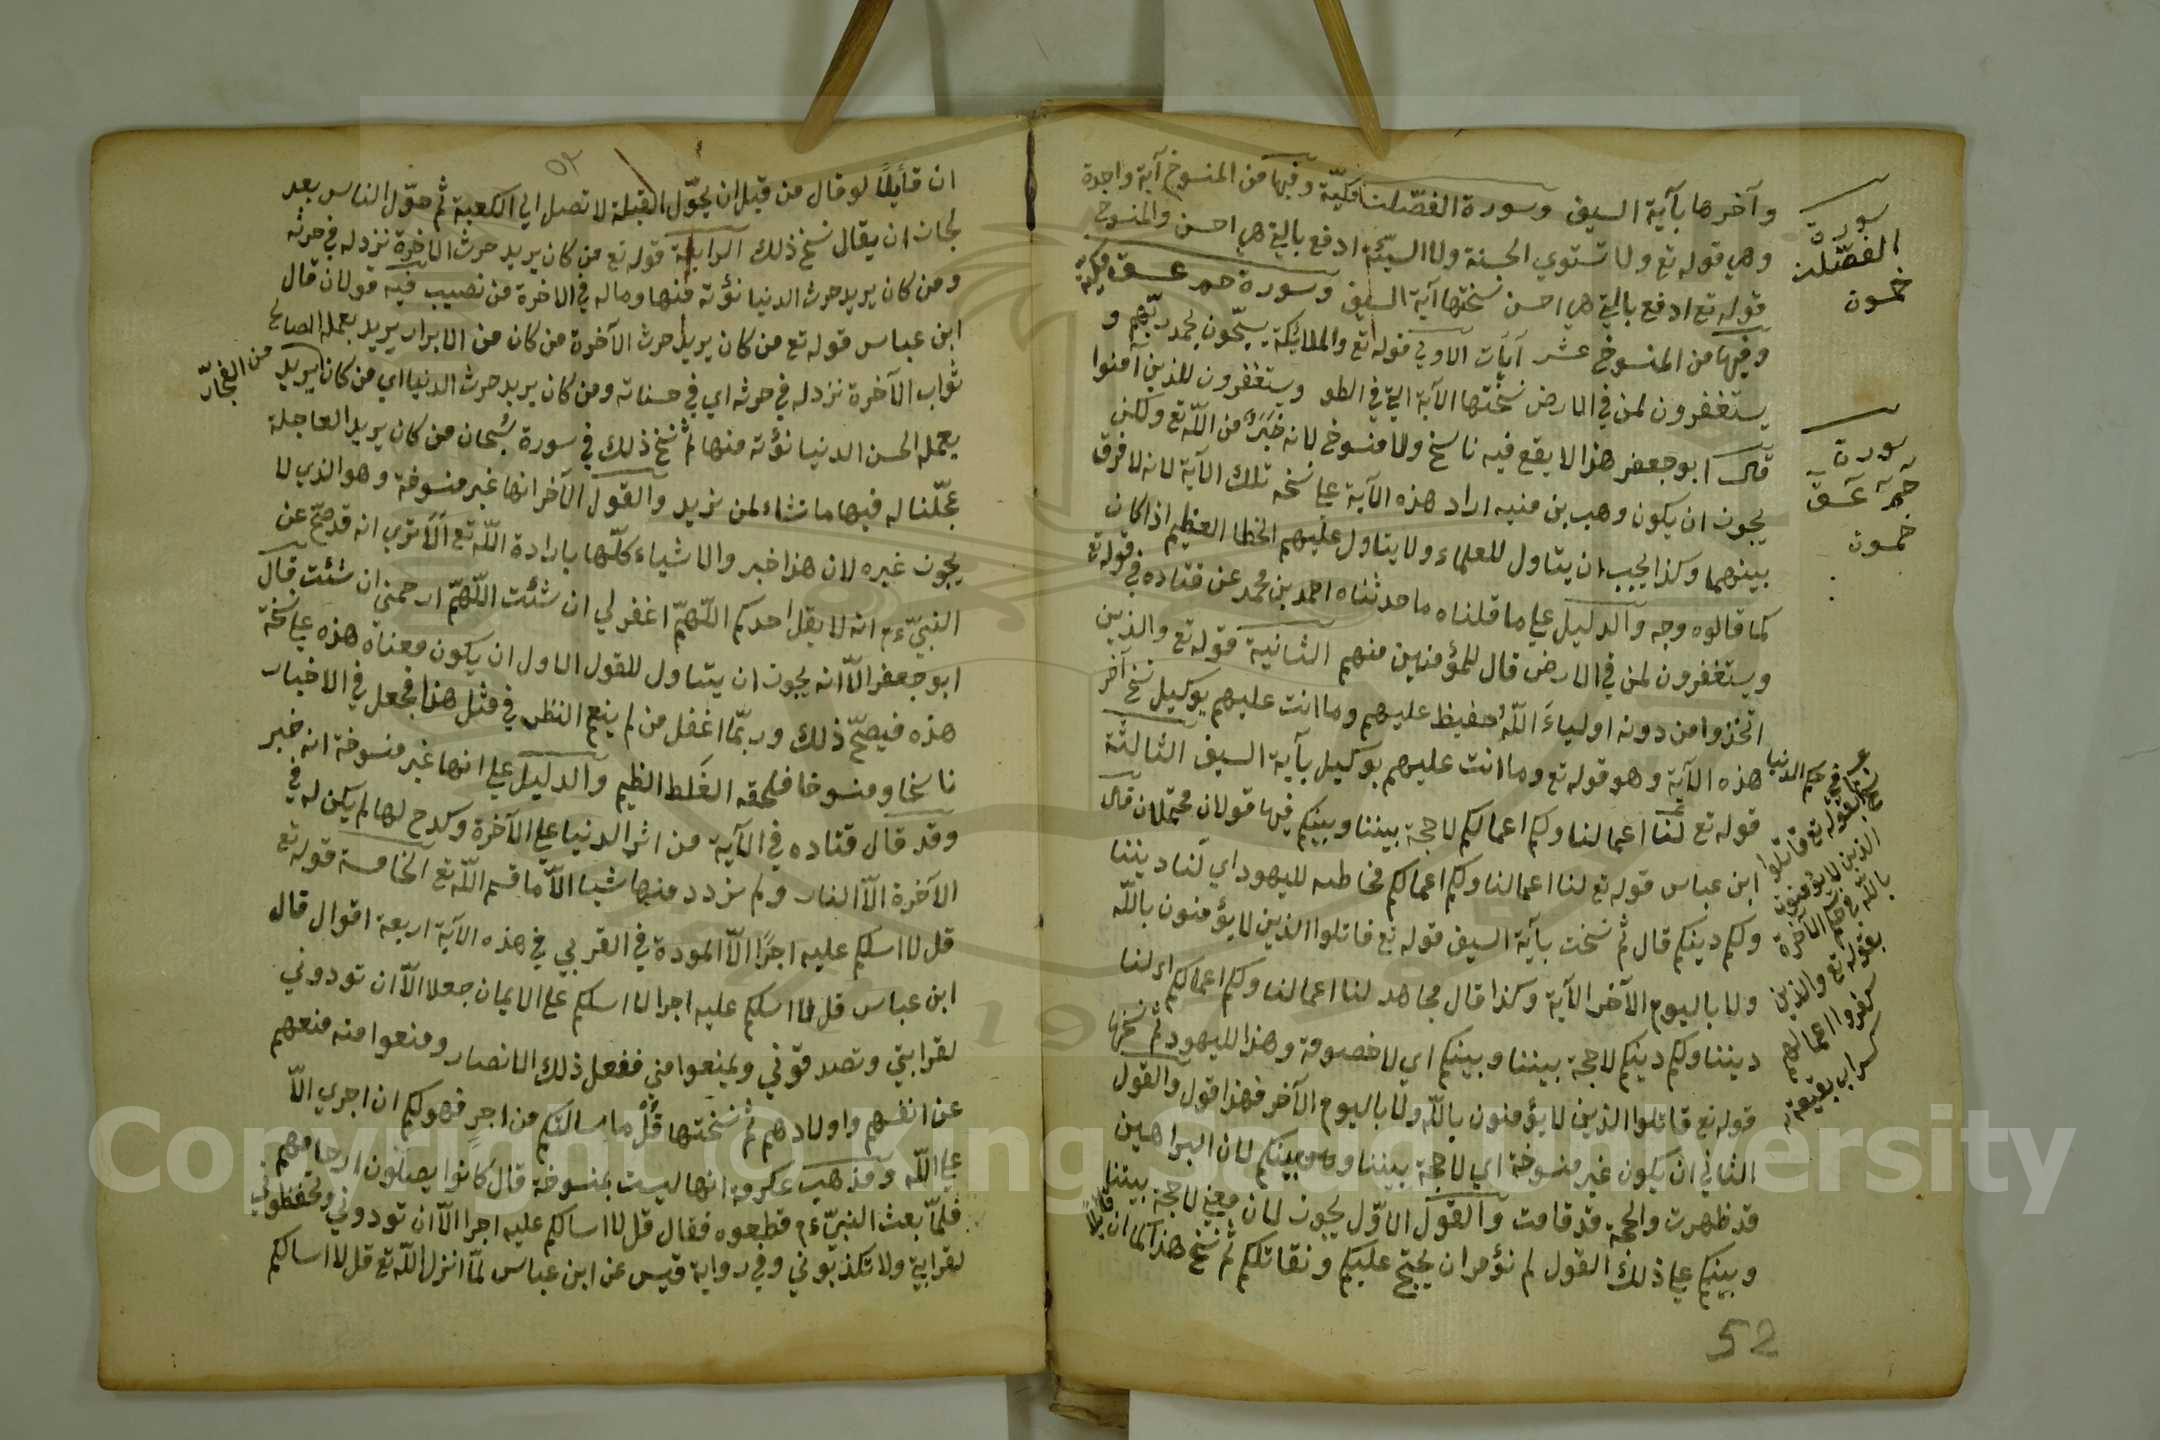 وآخرها بآية السيف وسورة الفصّلت مكيّة وفيها من المنسوخ آية واحدة
وهي قوله تع ولا تستوي الحسنة ولا السيّئة ادفع بالتي هي احسن والمنسوخ
قوله تع ادفع بالتي هي احسن نسختها آية السيف وسورة حم عسق مكية
وفيها من المنسوخ عشر آيات الاولي قوله تع والملائكة يسبّحون بحمد ربّهم و
يستغفرون لمن في الارض نسختها الآية التي في الطو ويستغفرون للذين آمنوا
قال ابو جعفر هذا لا يقع فيه ناسخ ولا منسوخ لانه خبر من اللّه تع ولكن
يجوز ان يكون وهب بن منبه اراد هذه الآية علي نسخه تلك الآية لانه لا فرق
بينهما وكذا يجب ان يتاول للعلماء ولا يتاول عليهم الخطا العظيم اذا كان
لما قالوه وجه والدليل علي ما قلناه ما حدثناه احمد بن محمد عن قتاده في قوله تع
ويستغفرون لمن في الارض قال للمؤمنين منهم الثانية قوله تع والذين
اتخذوا من دونه اولياء اللّه حفيظ عليهم وما انت عليهم بوكيل نسخ آخر
هذه الآية وهو قوله تع وما انت عليهم بوكيل بآية السيف الثالثة
قوله تع لنا اعمالنا ولكم اعمالكم لا حجة بيننا وبينكم فيها قولان محتملان قال
ابن عباس قوله تع لنا اعمالنا ولكم اعمالكم مخاطبه لليهود اي لنا ديننا
ولكم دينكم قال ثم نسخت بآية السيف قوله تع قاتلوا الذين لا يؤمنون باللّه
ولا باليوم الآخر الآية وكذا قال مجاهد لنا اعمالنا ولكم اعمالكم اي لنا
ديننا ولكم دينكم لا حجة بيننا وبينكم اي لا خصومة وهذا لليهود ثم نسخها
قوله تع قاتلوا الذين لا يؤمنون باللّه ولا باليوم الآخر فهذا قول والقول
الثاني ان يكون غير منسوخة اي لا حجة بيننا وبينكم لان البراهين
قد ظهرت والحجة قد قامت والقول الاوّل يجوز لان معني لا حجة بيننا
وبينكم علي ذلك القول لم نؤمر ان يحتج عليكم ونقاتلكم ثم نسخ هذا كما ان قايلًا
سورة
الفصّلت
خمسون
سورة
حم عسق
خمسون
بقوله تع قاتلوا
الذين لا يؤمنون
باللّه في حكم الآخرة
بقوله تع والذين
كفروا اعمالهم
كسراب بقيعة
52
٥٢
ان قأيلًا لو قال من قبل ان يحوّل القبلة لا تصل الي الكعبة ثم حوّل الناس بعد
لجاز ان يقال نسخ ذلك الرابعة قوله تع من كان يريد حرث الآخرة نزد له في حرثه
ومن كان يريد حرث الدنيا نؤته منها وما له في الاخرة من نصيب فيه قولان قال
ابن عباس قوله تع من كان يريد حرث الآخرة من كان من الابرار يريد بعمله الصالح
ثواب الآخرة نزد له في حرثه اي في حسناته ومن كان يريد حرث الدنيا اي من كان يريد من الفجارّ
بعمله الحسن الدنيا نؤته منها ثم نسخ ذلك في سورة سُبحان من كان يريد العاجلة
عجّلنا له فيها ما نشاء لمن نريد والقول الآخر انها غير منسوخة وهو الذي لا
يجوز غيره لان هذا خبر والاشياء كلّها بارادة اللّه تع الا تري انه قد صحّ عن
النبيّ ءم انه لا يقل احدكم اللّهمّ اغفر لي ان شئت اللّهمّ ارحمني ان شئت قال
ابو جعفر الّا انه يجوز ان يتناول للقول الاول ان يكون معناه هذه علي نسخة
هذه فيصحّ ذلك وربمّا اغفل من لم ينعم النظر في مثل هذا فجعل في الاخبار
ناسخا ومنسوخا فلحقه الغَلط الظيم والدليل علي انها غير منسوخة انه خبر
وقد قال قتاده في الآية من اثر الدنيا علي الآخرة وكدح لها لم يكن له في
الآخرة الّا النار ولم نزدد منها شيا الّا ما قسم اللّه تع الخامسة قوله تع
قل لا اسلكم عليه اجرًا الّا المودة في القربي في هذه الآية اربعة اقوال قال
ابن عباس قل لا اسلكم عليه اجرا لا اسلكم علي الايمان جعلا الّا ان تودوني
لقرابتي وتصدقوني وتمنعوا مني ففعل ذلك الانصار ومنعوا منه منعهم
عن انفسهم واولادهم ثم نسختها قُل ما سالتكم من اجرٍ فهو لكم ان اجري الّا
علي اللّه ومذهب عكرمة انها ليست بمنسوخة قال كانوا يصلون ارحامهم
فلمّا بعث النبيّ ءم قطعوه فقال قل لا اسالكم عليه اجرا الّا ان تودوني وتحفظوني
لقرابتي ولا تكذبوني وفي رواية قيس عن ابن عباس لمّا انزل اللّه تع قل لا اسالكم
Copyright © King Saud University